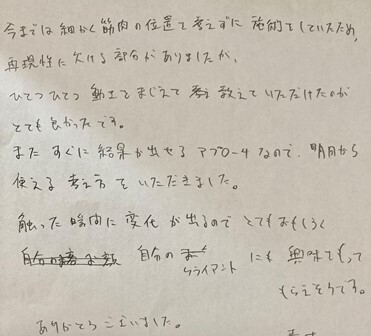 今までは細かく筋肉の位置を考えずに施術をしていたため、
再現性に欠ける部分がありましたが、
ひとつひとつ動士をまじえて教えていただけたのが
とても良かったです。
またすぐに結果が出せるアプローチなので、明日から
使える考え方をいただきました。
触った瞬間に変化が出るのでとてもおもしろく
自分の
自分のクライアントにも興味をもって
もらえそうです。
ありがとうございました。